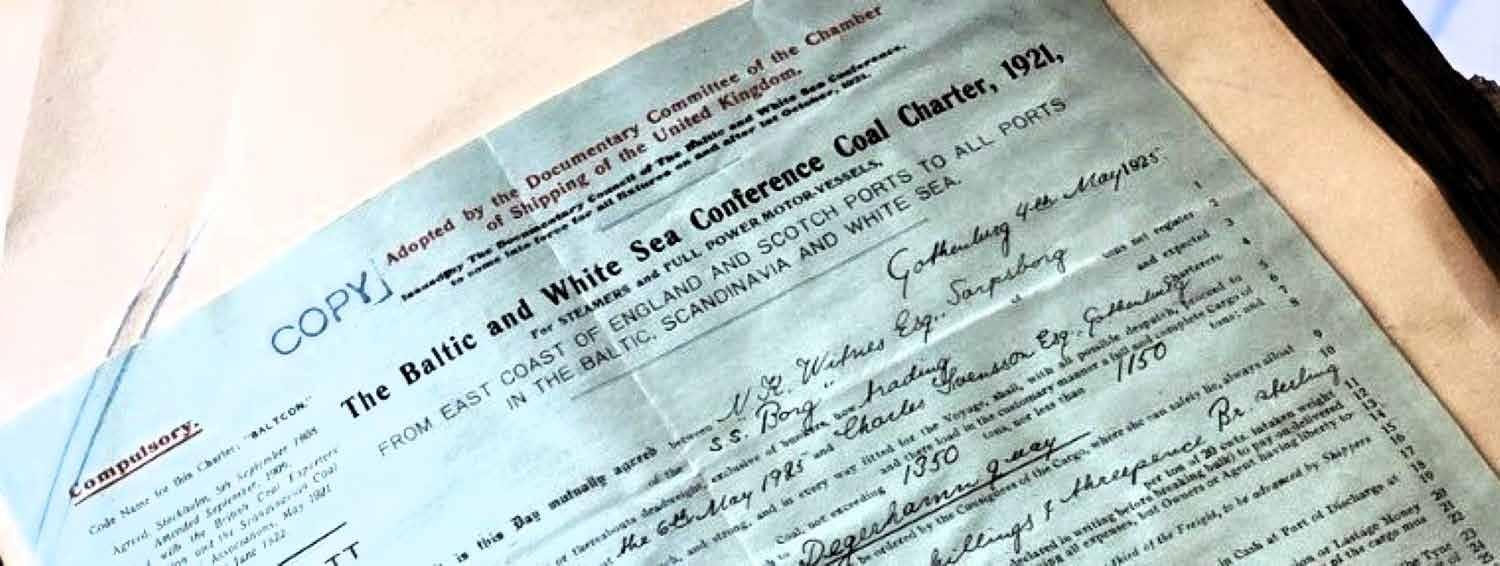 Adopted by the Documentary Committee of the Chamber
of Shipping of the United Kingdom.
Issued by The Documentary Council of The Baltic and White Sea Conference.
to come into force for all fixtures on and after 1st October, 1921.
COPY
The Baltic and White Sea Conference Coal Charter, 1921,
For STEAMERS and FULL POWER MOTOR-VESSELS,
FROM EAST COAST OF ENGLAND AND SCOTCH PORTS TO ALL PORTS
IN THE BALTIC, SCANDINAVIA AND WHITE SEA.
Compulsory.
Code Name for this Charter: "BALTCON"
Agreed, Stockholm, 5th September 1908
Amended September, 1909,
with the British Coal Exporters
and the Scandinavian Coal
Associations, May 1921
June 1922
Gothenburg 4th May 1925 1
is this Day mutually agreed between N. K. Esq., Sarpsborg 2
of the S.S. "Borg" of tons net register 3
or thereabouts deadweight, exclusive of bunkers, now trading and expected 4
the 6th May 1925 and Charles Svensson Esq. Gothenburg Charterers 5
and strong, and in every way fitted for the Voyage, shall, with all possible despatch, proceed to 6
and there load in the customary manner a full and complete Cargo of 7
Coal, not exceeding 1350 tons, nor less than 1150 tons, and 8
Degerhamn quay where she can safely lie, always afloat 9
be ordered by the Consignees of the Cargo, 10
shillings & threepence Br. sterling 11
per ton of 20 cwts. intaken weight 12
declared in writing before breaking bulk) to pay on delivered 13
all expenses, but Owners or Agent having liberty to 14
third of the Freight, to be advanced by Shippers 16
in Cash at Port of Discharge at
or Lastage Money
of the cargo
the Tyne